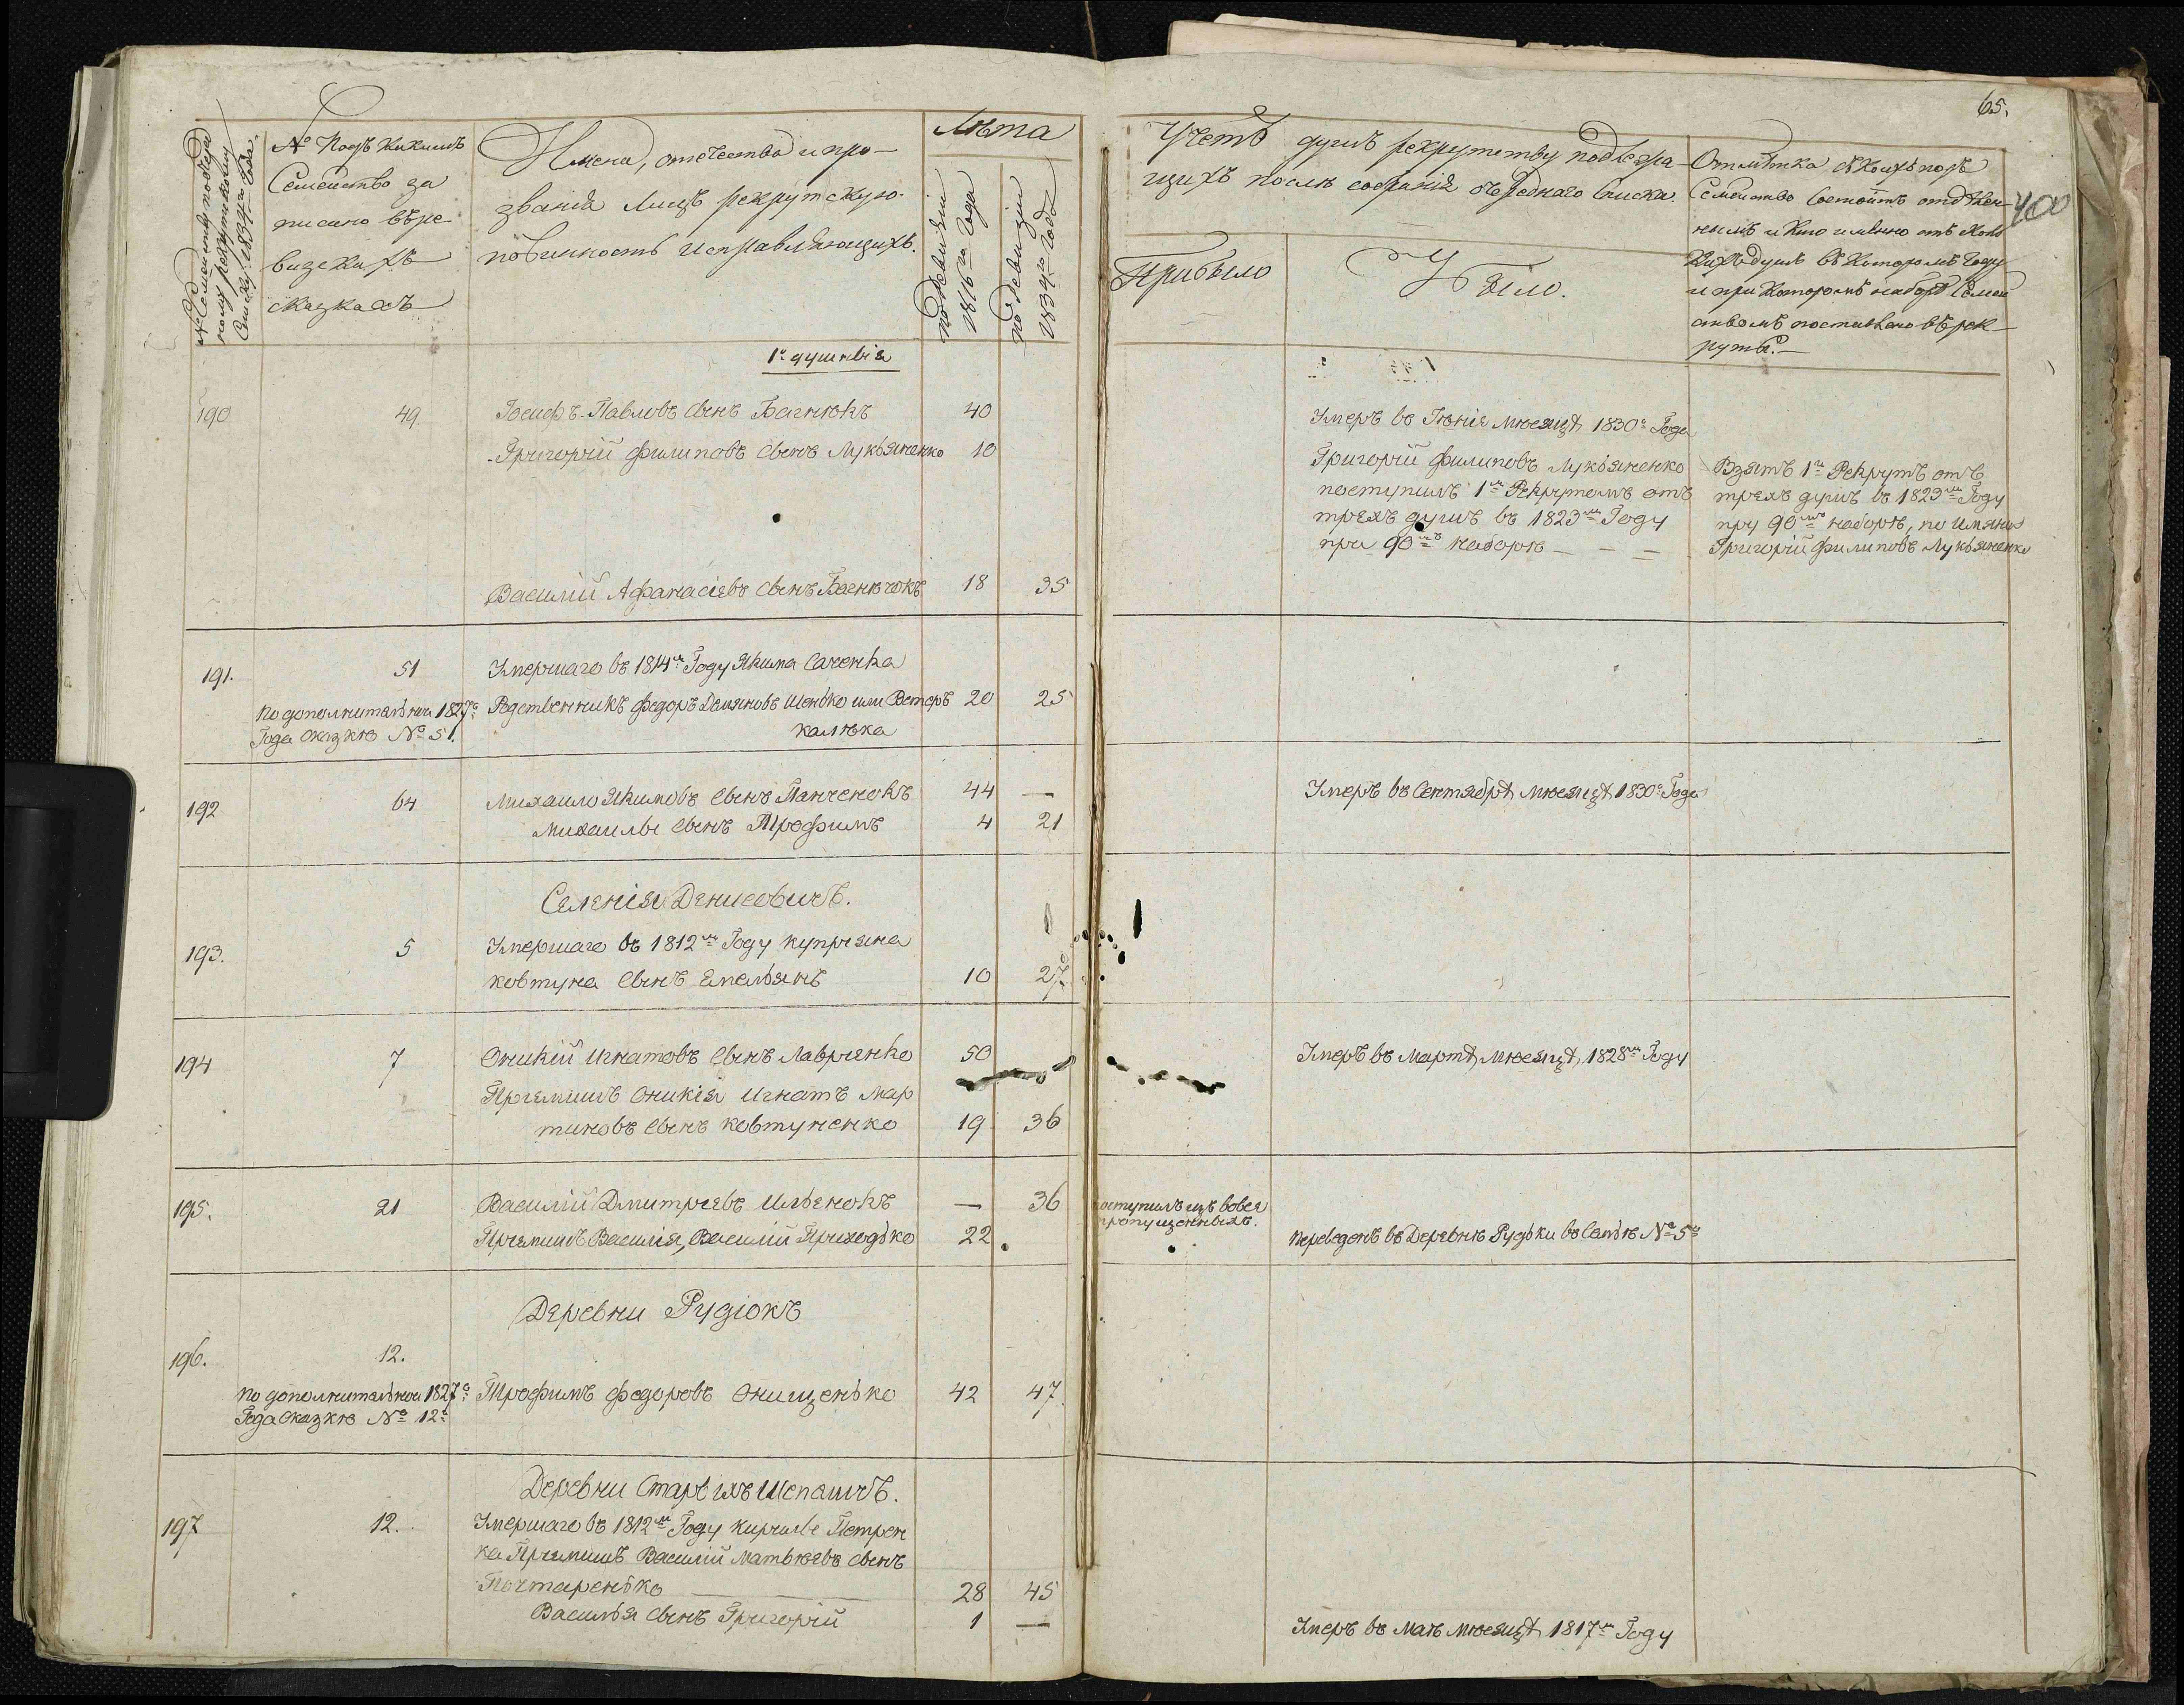 65.
400
№ Семейству по очеред
ному рекрутскому
Списку 1831го года.
№ Подъ какимъ
Семейство за
писано въ ре-
визскихъ
сказкахъ
Имена, отечества и про-
званія лицъ рекрутскую
повинность исправляющихъ.
Лѣта
по Ревизіи
1816го года
по Ревизіи
1834го года
Учетъ душъ рекрутству подлежа-
щихъ послѣ собранія очереднаго списка.
Прибыло
Убыло.
Отмѣтка
Семейство состоитъ
и кто именно отъ
душъ въ которомъ году
и при которомъ наборѣ Семей
ствомъ поставлено въ рек-
руты.
1о душнія
190
49.
Іосифъ Павловъ сынъ Багнюкъ
40
Умеръ въ Іюнія мѣсяцѣ 1830о Года
Григорій Филиповъ сынъ Лукьяненко
10
Григорій Филиповъ Лукьяненко
поступилъ 1мъ Рекрутомъ отъ
трехъ душъ въ 1823мъ Году
при 90мъ наборѣ — — —
Взятъ 1й Рекрутъ отъ
трехъ душъ въ 1823мъ Году
при 90мъ наборѣ, по имянно
Григорій Филиповъ Лукьяненко
Василій Афанасіевъ сынъ Багнючокъ
18
35
191.
51
Умершаго въ 1814м Году Якима Саченка
По дополнитальной 1827го
Года сказкѣ № 51.
Родственникъ Федоръ Демяновъ Шенько или Ветеръ
20
25
калѣка
192
64
Михаило Якимовъ сынъ Панченокъ
44
—
Умеръ въ Сентябрѣ мѣсяцѣ 1830о Года
Михаилы сынъ Трофимъ
4
21
Селенія Денисовичъ.
193.
5
Умершаго въ 1812м Году Купріяна
Ковтуна сынъ Емельянъ
10
27
194
7
Оникій Игнатовъ сынъ Лавриенко
50
Умеръ въ Мартѣ мѣсяцѣ, 1828м Году
Приемишъ Оникія Игнатъ Мар
тиновъ сынъ Ковтуненко
19
36
195.
21
Василій Дмитріевъ Ильенокъ
—
36
поступилъ изъ вовся
пропущенныхъ.
Приемишъ Василія, Василій Приходько
22.
переведенъ въ Деревнѣ Рудьки въ Семьѣ № 5о
Деревни Рудіокъ
196.
12.
По дополнитальной 1827о
Года сказкѣ № 12о
Трофимъ Федоровъ Онищенько
42
47
Деревни Старыхъ Шепаличъ.
197
12.
Умершаго въ 1812м Году Кирилы Петрен
ка Приемишъ Василій Матвѣевъ сынъ
Почтаренько
28
45
Василья сынъ Григорій
1
—
Умеръ въ Маѣ мѣсяцѣ 1817м Году